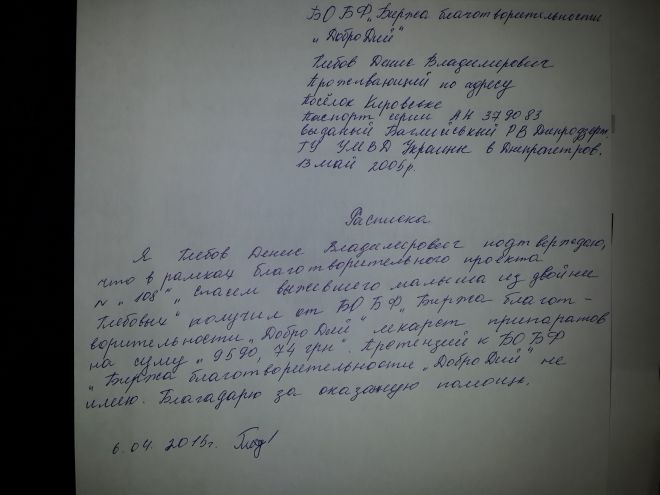 БО БФ „Биржа благотворительности
„ДоброДий"
Глебов Денис Владимирович
Проживающий по адресу
Посёлок Кировське
Паспорт серии АН 379083
выданый Баглийський РВ Днепродзерж.
ГУ УМВД Украины в Днепропетров.
13 май 2005р.
Расписка
Я Глебов Денис Владимирович подтверждаю,
что в рамках благотворительного проекта
№ „108" „Спасем выжевшего малыша из двойни
Глебовых" получил от БО БФ „Биржа благот-
ворительности „ДоброДий" лекарст препаратов
на суму „9590, 74 грн". Протензий к БО БФ
„Биржа благотворительности „ДоброДий" не
имею. Благодарю за оказаную помощь.
6.04. 2015г.